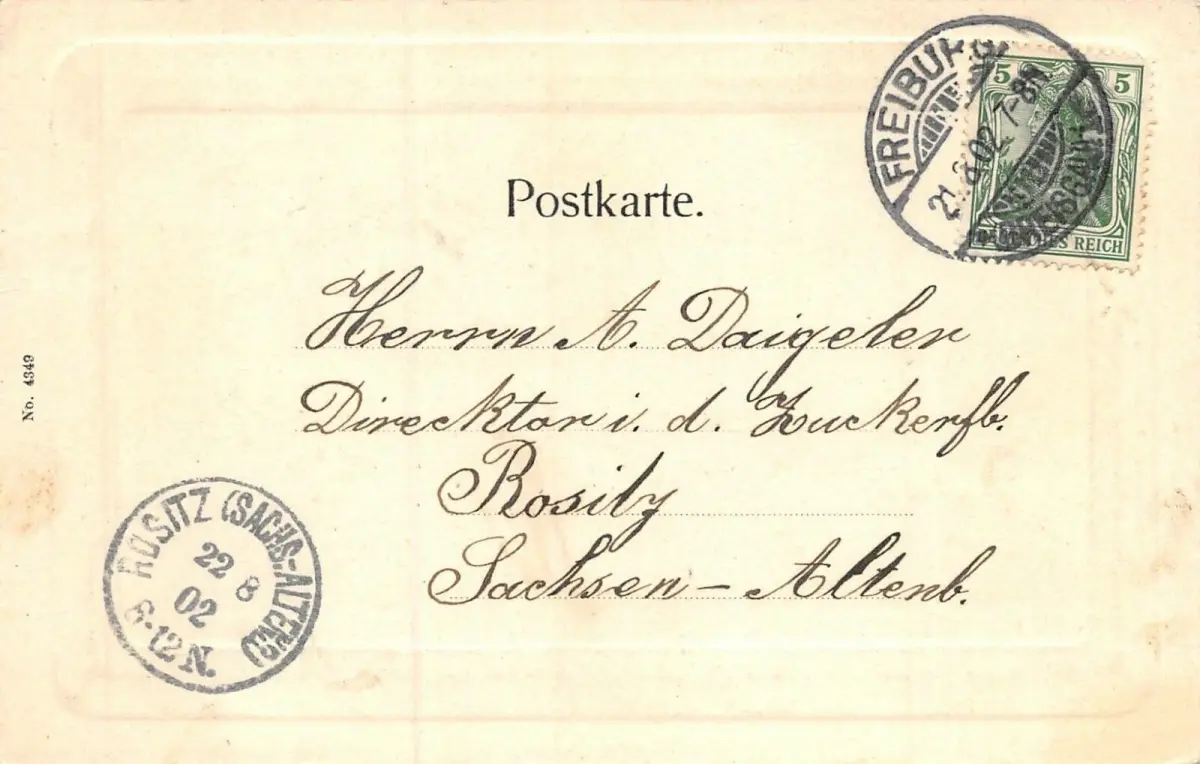 Postkarte.
FREIBURG
21.8.02.7-8N
BREISGAU
5 5
REICH
Herrn A. Daigeler
Direktor i. d. Zuckerfb.
Rositz
Sachsen-Altenb.
No. 4349
ROSITZ (SACHS.-ALTENB.)
22 8
02
6-12 N.